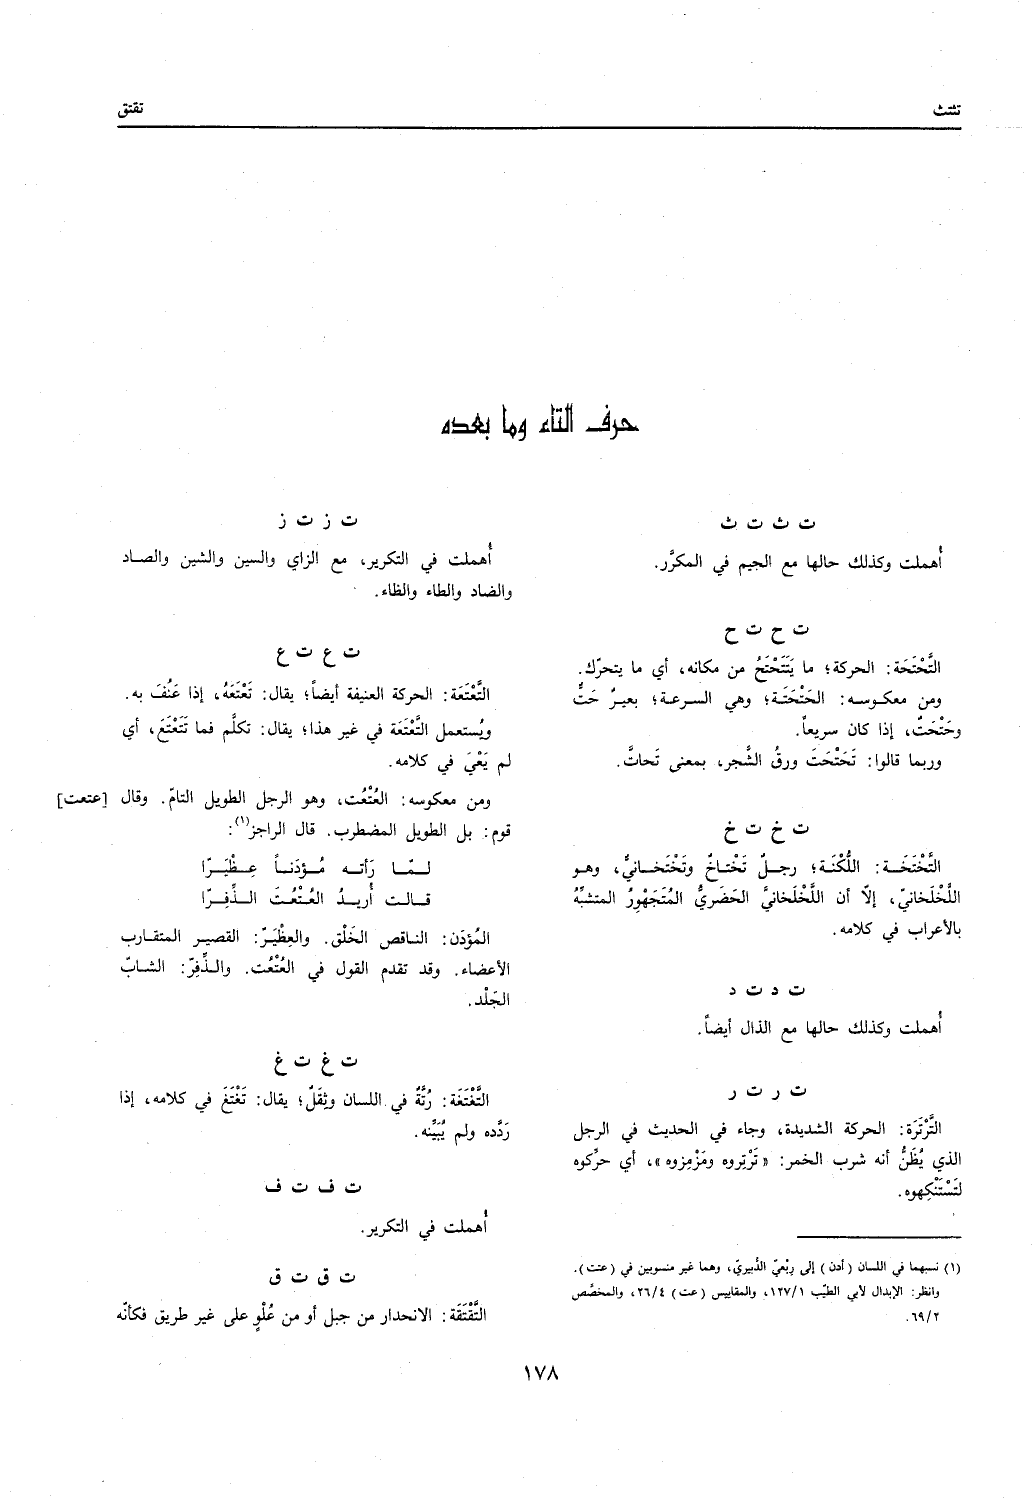 تثتث
تقتق
حرف التاء وما بعده
ت ث ت ث
أُهملت وكذلك حالها مع الجيم في المكرَّر.
ت ح ت ح
التَّحْتَحَة: الحركة؛ ما يَتَتَحْتَحُ من مكانه، أي ما يتحرّك.
ومن معكوسه: الحَتْحَتَة؛ وهي السرعة؛ بعيرٌ حَتٌّ
وحَتْحَتٌ، إذا كان سريعاً.
وربما قالوا: تَحَتْحَتَ ورقُ الشَّجر، بمعنى تَحاتَّ.
ت خ ت خ
التَّخْتَخَة: اللُّكْنَة؛ رجلٌ تَخْتاخٌ وتَخْتَخانيٌّ، وهو
اللَّخْلَخانيّ، إلّا أن اللَّخْلَخانيَّ الحَضَريُّ المُتَجَهْوِرُ المتشبِّهُ
بالأعراب في كلامه.
ت د ت د
أُهملت وكذلك حالها مع الذال أيضاً.
ت ر ت ر
التَّرْتَرَة: الحركة الشديدة، وجاء في الحديث في الرجل
الذي يُظَنُّ أنه شرب الخمر: «تَرْتِروه ومَزْمِزوه»، أي حرِّكوه
لتَسْتَنْكِهوه.
ت ز ت ز
أُهملت في التكرير، مع الزاي والسين والشين والصاد
والضاد والطاء والظاء.
ت ع ت ع
التَّعْتَعَة: الحركة العنيفة أيضاً؛ يقال: تَعْتَعَهُ، إذا عَنُفَ به.
ويُستعمل التَّعْتَعَة في غير هذا؛ يقال: تكلَّم فما تَتَعْتَعَ، أي
لم يَعْيَ في كلامه.
ومن معكوسه: العُتْعُت، وهو الرجل الطويل التامّ. وقال [عتعت]
قوم: بل الطويل المضطرب. قال الراجز(١):
لمّا رَأته مُؤدَناً عِظْيَرّا
قالت أُريدُ العُتْعُتَ الذِّفِرّا
المُؤدَن: الناقص الخَلْق. والعِظْيَرّ: القصير المتقارب
الأعضاء. وقد تقدم القول في العُتْعُت. والذِّفِرّ: الشابّ
الجَلْد.
ت غ ت غ
التَّغْتَغَة: رُتَّةٌ في اللسان وثِقَلٌ؛ يقال: تَغْتَغَ في كلامه، إذا
رَدَّده ولم يُبَيِّنه.
ت ف ت ف
أُهملت في التكرير.
ت ق ت ق
التَّقْتَقَة: الانحدار من جبل أو من عُلْوٍ على غير طريق فكأنّه
(١) نسبهما في اللسان (أدن) إلى رِبْعيّ الدُّبيريّ، وهما غير منسوبين في (عتت).
وانظر: الإبدال لأبي الطيّب ١٢٧/١، والمقاييس (عت) ٢٦/٤، والمخصَّص
٦٩/٢.
١٧٨